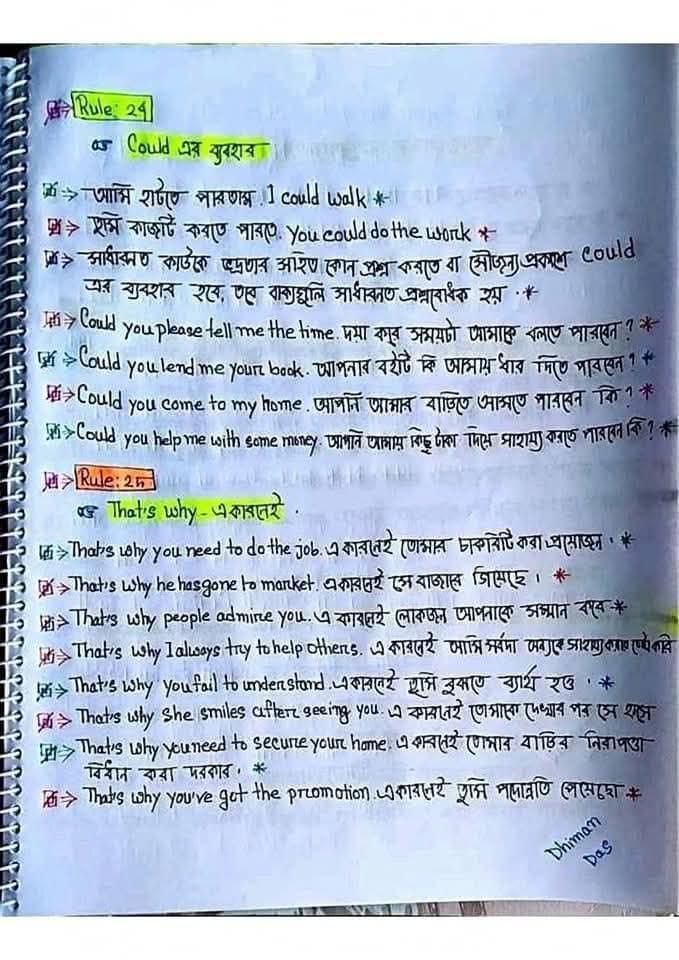 Rule: 24
Could এর ব্যবহার
আমি হাটতে পারতাম. I could walk *
তুমি কাজটি করতে পারতে. You could do the work *
সাধারনত কাউকে ভদ্রতার সহিত কোন প্রশ্ন করতে বা সৌজন্য প্রকাশে Could
এর ব্যবহার হবে, তবে বাক্যগুলি সাধারনত প্রশ্নবোধক হয় . *
Could you please tell me the time. দয়া করে সময়টা আমাকে বলতে পারবেন? *
Could you lend me your book. আপনার বইটি কি আমায় ধার দিতে পারবেন? *
Could you come to my home. আপনি আমার বাড়িতে আসতে পারবেন কি? *
Could you help me with some money. আপনি আমায় কিছু টাকা দিয়ে সাহায্য করতে পারবেন কি? *
Rule: 25
That's why - একারনেই .
That's why you need to do the job. একারনেই তোমার চাকরিটি করা প্রয়োজন . *
That's why he has gone to market. একারনেই সে বাজারে গিয়েছে । *
That's why people admire you. এ কারনেই লোকজন আপনাকে সম্মান করে *
That's why I always try to help others. এ কারনেই আমি সর্বদা অন্যকে সাহায্য করার চেষ্টা করি
That's why you fail to understand. একারনেই তুমি বুঝতে ব্যার্থ হও . *
That's why she smiles after seeing you. এ কারনেই তোমাকে দেখার পর সে হাসে
That's why you need to secure your home. এ কারনেই তোমার বাড়ির নিরাপত্তা
বিধান করা দরকার . *
That's why you've got the promotion. একারনেই তুমি পদোন্নতি পেয়েছো *
Dhiman
Das